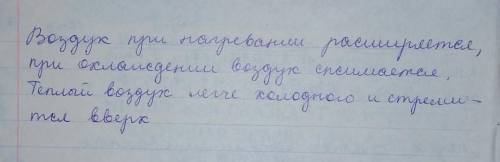 Воздух при нагревании расширяется,
при охлаждении воздух сжимается.
Теплый воздух легче холодного и стреми-
тся вверх